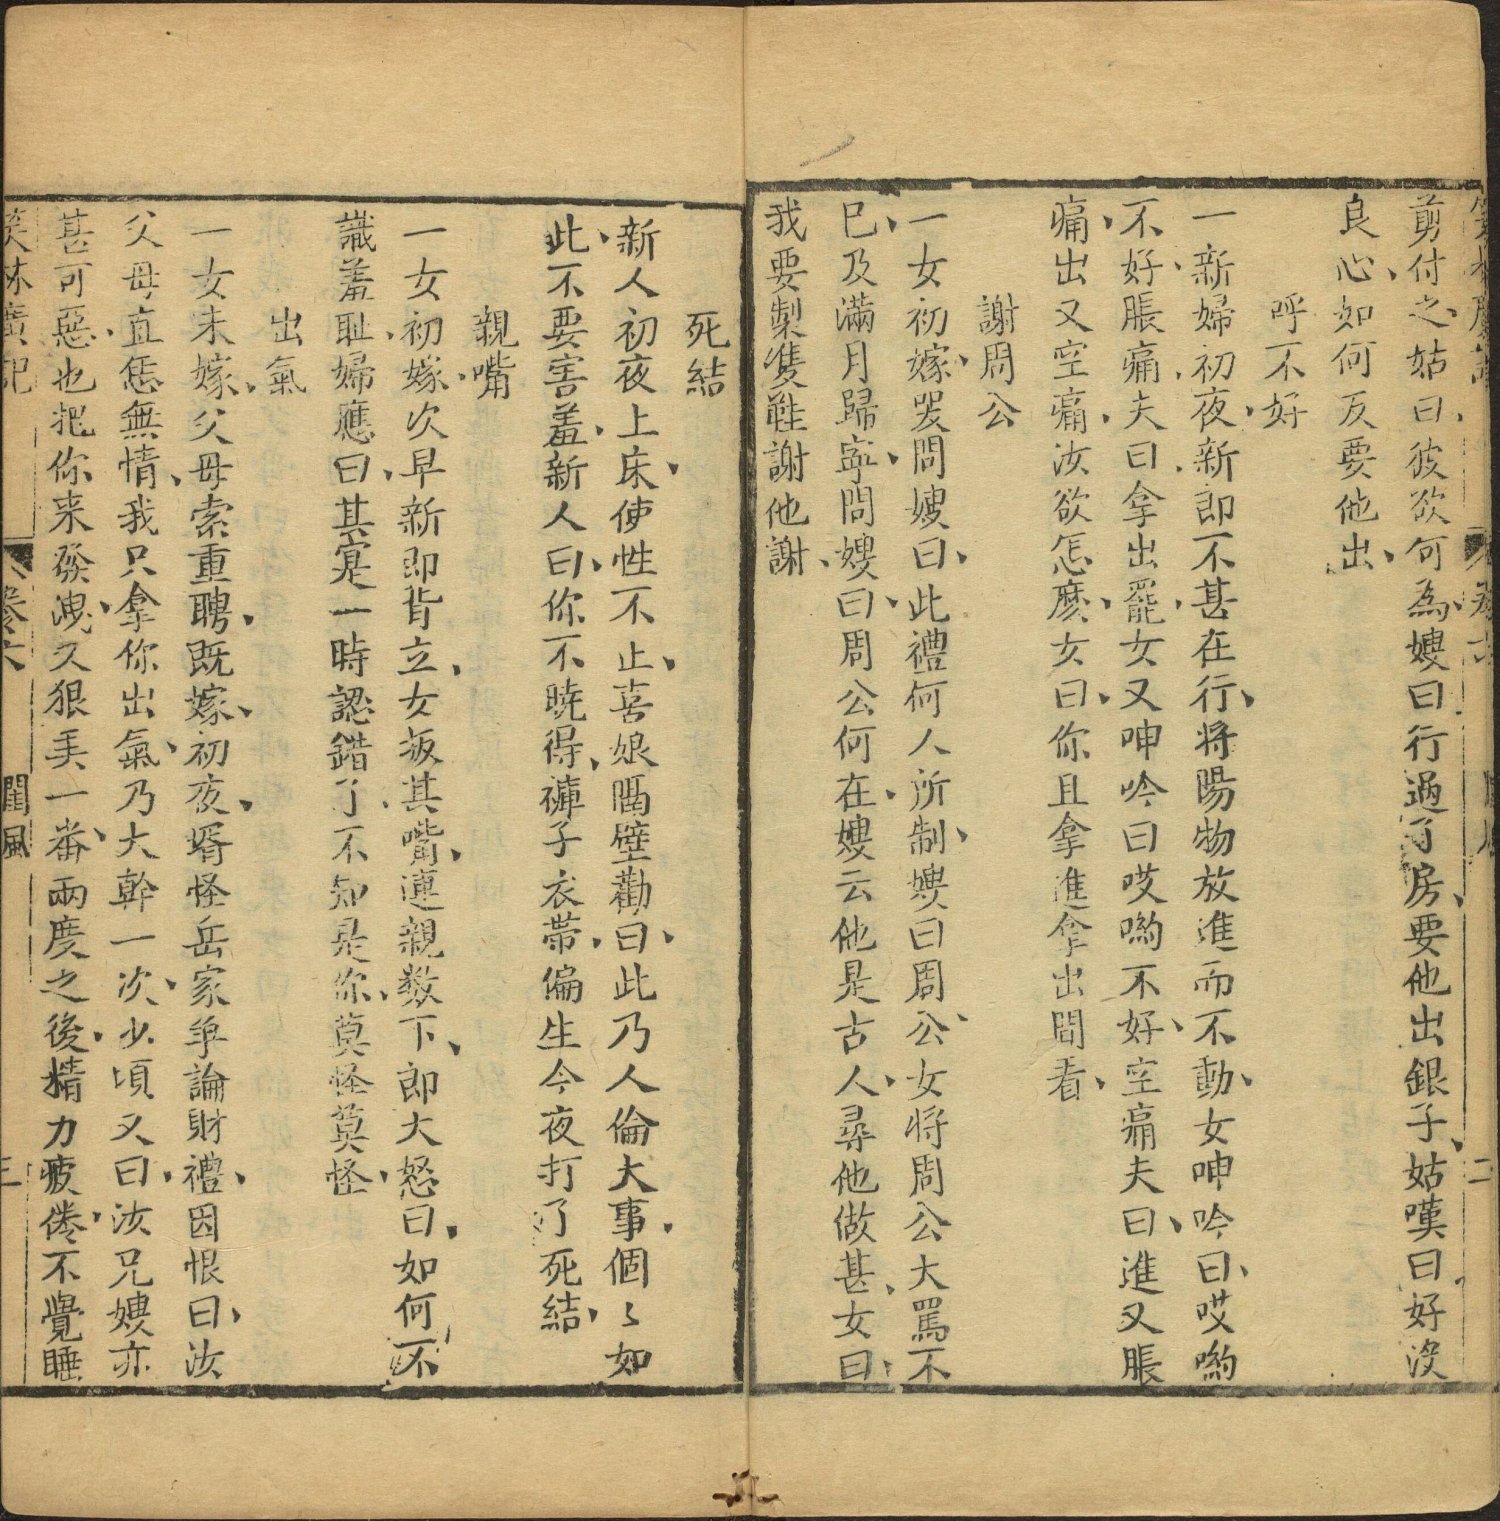 剪付之、姑曰、彼欲何為、嫂曰行過了房、要他出銀子、姑嘆曰好沒
良心、如何反要他出、
呼不好
一新婦初夜、新郎不甚在行、将陽物放進而不動、女呻吟曰、哎喲
不好、脹痛、夫曰、拿出罷、女又呻吟曰哎喲不好、空痛夫曰、進又脹
痛、出又空痛、汝欲怎麽、女曰、你且拿進拿出間看、
謝周公
一女初嫁、哭問嫂曰、此禮何人所制、嫂曰周公、女将周公大罵不
已、及滿月歸寧、問嫂曰、周公何在、嫂云他是古人、尋他做甚、女曰、
我要製隻鞋謝他謝、
死結
新人初夜上床、使性不止、喜娘隔壁勸曰、此乃人倫大事、個〻如
此、不要害羞、新人曰、你不曉得、褲子衣帶、偏生今夜打了死結、
親嘴
一女初嫁、次早新郎背立、女扳其嘴、連親数下、郎大怒曰、如何不
識羞耻、婦應曰、其寔一時認錯了、不知是你、莫怪莫怪、
出氣
一女未嫁、父母索重聘、既嫁、初夜、壻怪岳家争論財禮、因恨曰、汝
父母直恁無情、我只拿你出氣、乃大幹一次、少頃又曰、汝兄嫂亦
甚可惡、也把你来發洩、又狠弄一番、兩度之後、精力疲倦、不覺睡
笑林廣記
卷六
閨風
三